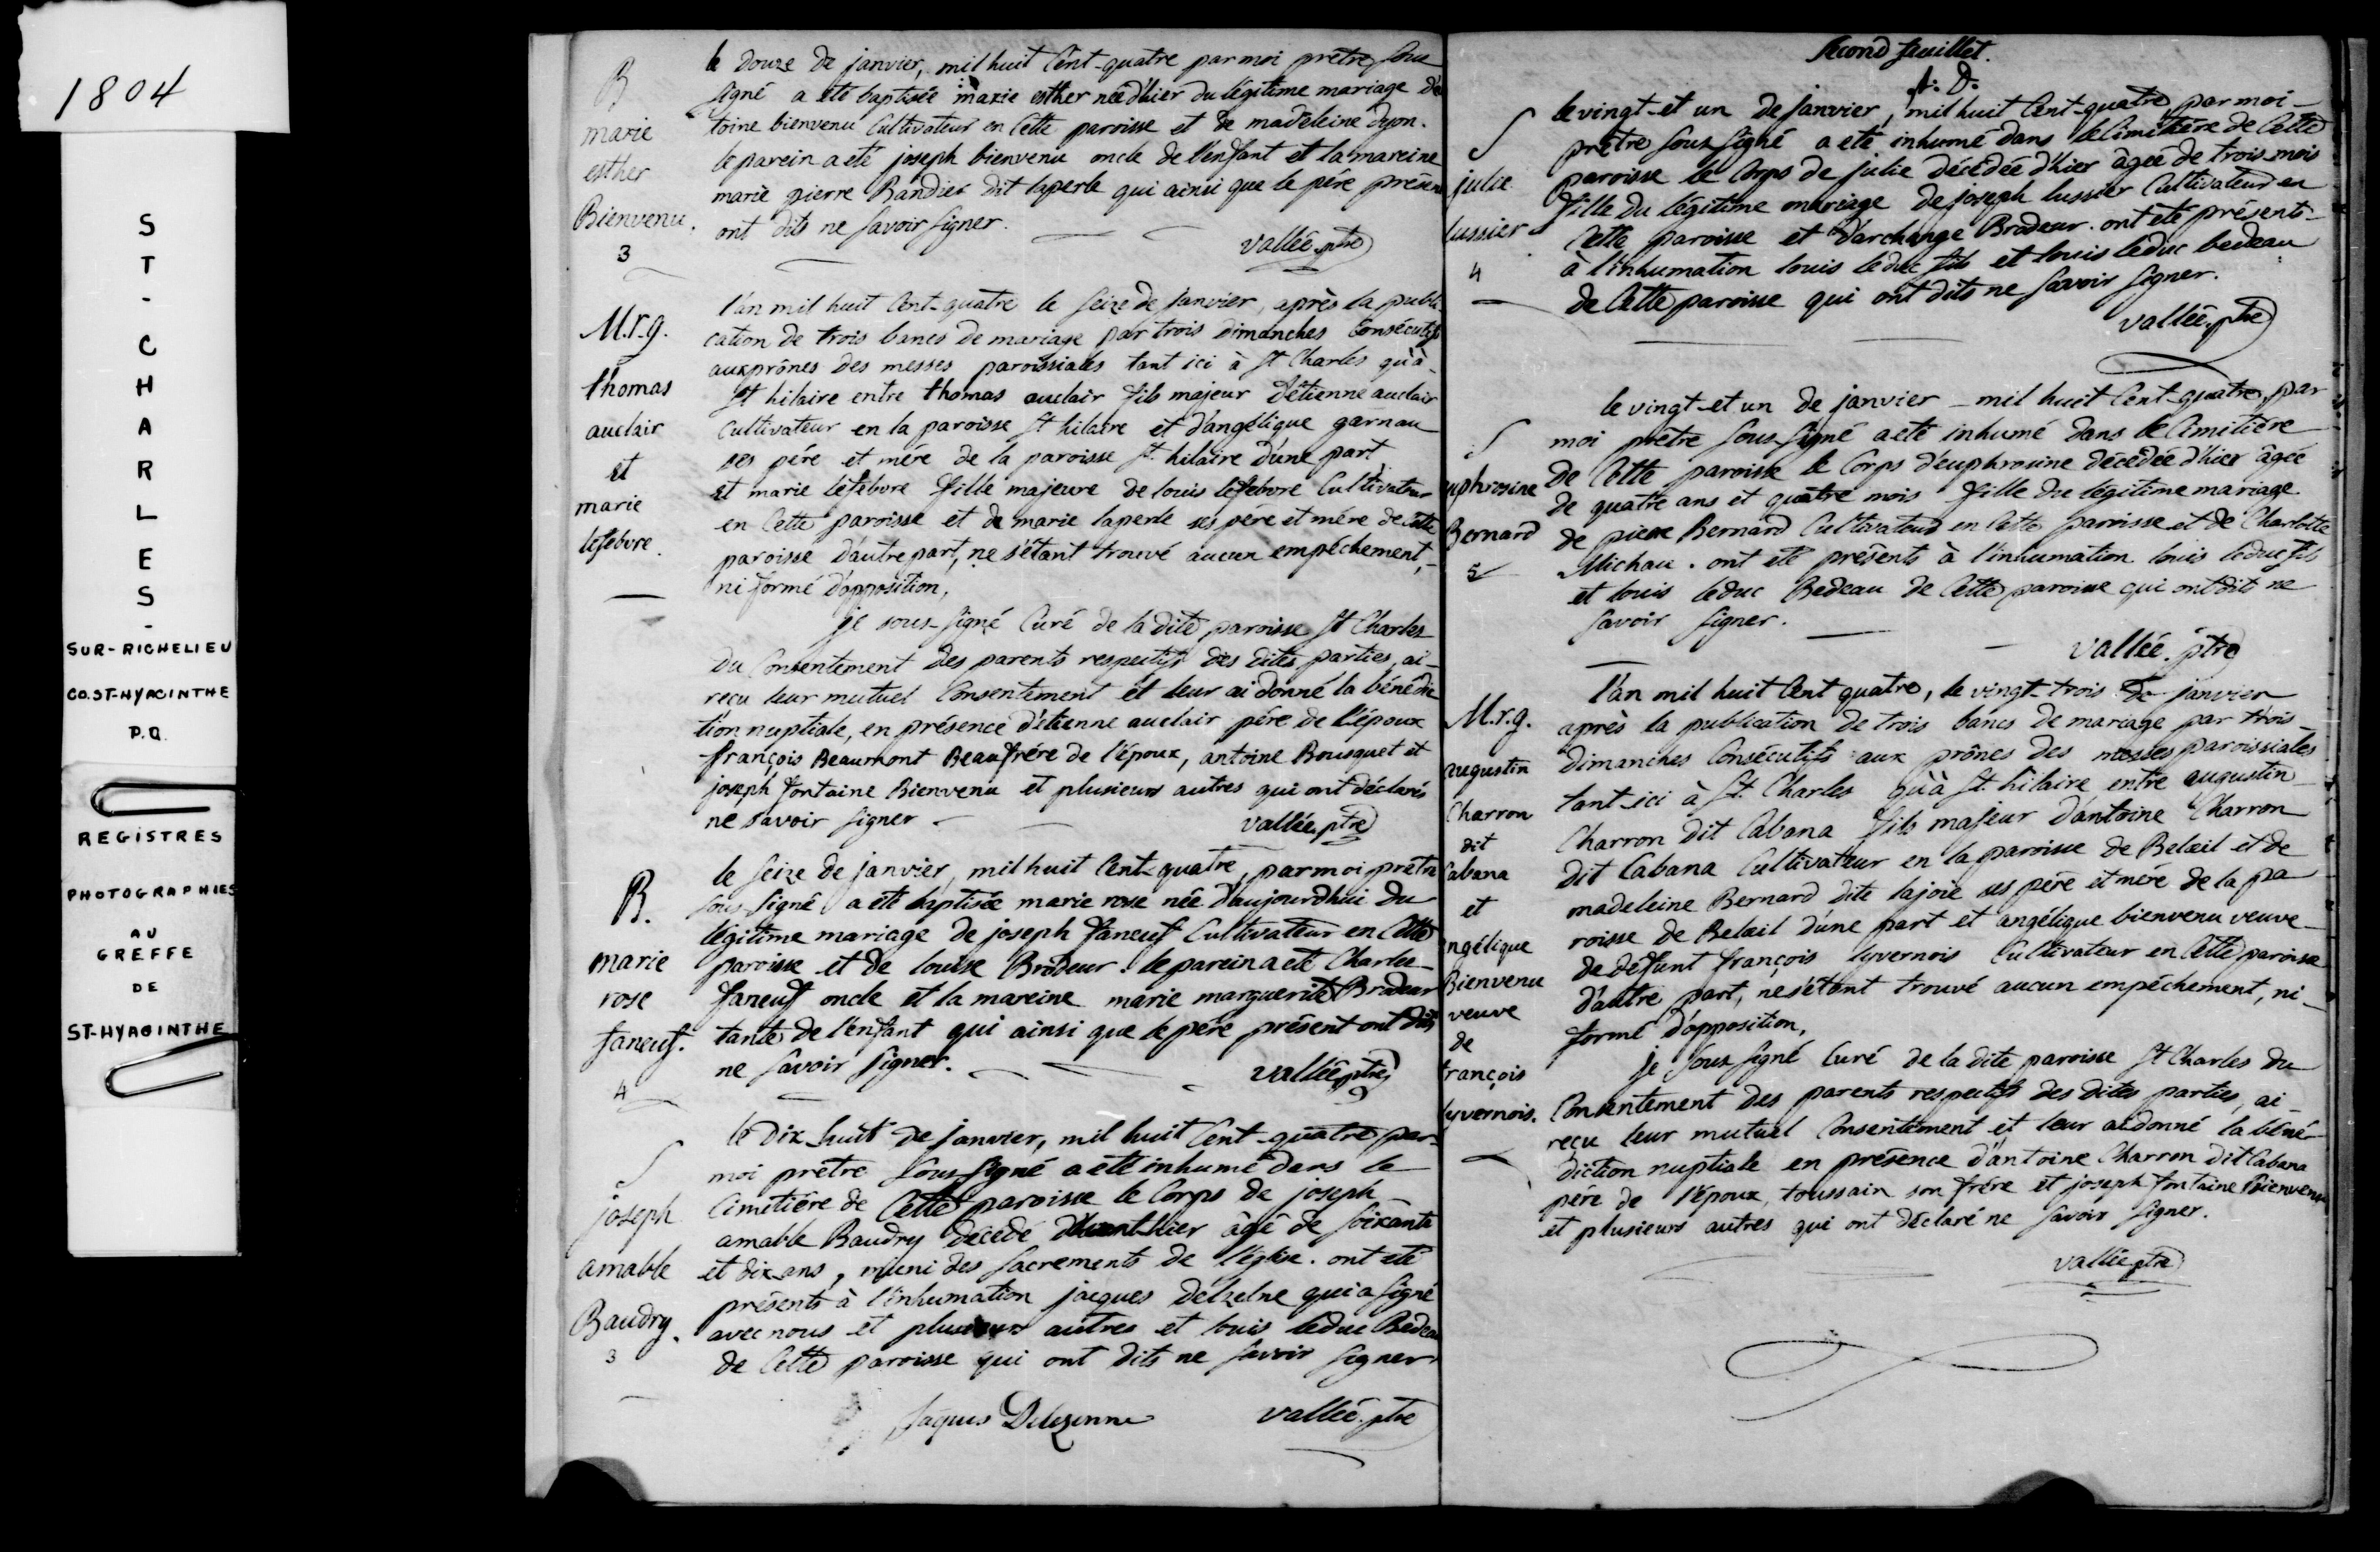 1804
ST-CHARLES-
SUR-RICHELIEU
CO. ST-HYACINTHE
P.Q.
REGISTRES
PHOTOGRAPHIES
AU
GREFFE
DE
ST-HYACINTHE
B
marie
esther
Bienvenu.
3
le douze de janvier, mil huit Cent-quatre par moi prêtre sous
signé a eté baptisée marie esther née d'hier du légitime mariage d'an
toine bienvenu Cultivateur en Cette paroisse et de madeleine dyon.
le parein a eté joseph bienvenu oncle de l'enfant et la mareine
marie pierre Bandier dit laperle qui ainsi que le pére présen
ont dits ne savoir signer.
vallée ptre
M.r.g.
thomas
auclair
et
marie
lefebvre.
l'an mil huit Cent-quatre le seize de janvier, après la publi
cation de trois bancs de mariage par trois dimanches Consécutifs
aux prônes des messes paroissiales tant ici à St Charles qu'à
St hilaire entre thomas auclair fils majeur d'étienne auclair
Cultivateur en la paroisse St hilaire et d'angélique garnau
ses pére et mére de la paroisse St. hilaire d'une part
et marie lefebvre fille majeure de louis lefebvre Cultivateur
en Cette paroisse et de marie laperle ses pére et mére de Cette
paroisse d'autre part, ne s'étant trouvé aucun empéchement,
ni formé d'opposition,
je sous signé Curé de la dite paroisse St Charles
du Consentement des parents respectifs des dites parties, ai
reçu leur mutuel Consentement et leur ai donné la bénédic
tion nuptiale, en présence d'étienne auclair pére de l'époux
françois Beaumont Beaufrére de l'époux, antoine Bousquet et
joseph fontaine Bienvenu et plusieurs autres qui ont déclarés
ne savoir signer
vallée ptre
B.
marie
rose
faneuf.
4
le seize de janvier, mil huit Cent-quatre, par moi prêtre
sous signé a eté baptisée marie rose née d'aujourdhui du
légitime mariage de joseph faneuf Cultivateur en Cette
paroisse et de louise Brodeur. le parein a eté Charles
faneuf oncle et la mareine marie marguerite Brodeur
tante de l'enfant qui ainsi que le pére présent ont dits
ne savoir signer.
vallée ptre
S
joseph
amable
Baudry.
3
le dix huit de janvier, mil huit Cent-quatre par
moi prêtre sous signé a eté inhumé dans le
Cimetiére de Cette paroisse le Corps de joseph
amable Baudry décédé d'avant hier âgé de soixante
et dix ans, muni des sacrements de l'église. ont eté
présents à l'inhumation jacques delzelne qui a signé
avec nous et plusieurs autres et louis leduc Bedeau
de Cette paroisse qui ont dits ne savoir signer
Jaques Delezenne vallée. ptre
Second feuillet.
A. D.
S
julie
lussier
4
le vingt-et un de janvier, mil huit Cent-quatre par moi
prêtre sous signé a eté inhumé dans le Cimetiére de Cette
paroisse le Corps de julie décédée d'hier âgée de trois mois
fille du légitime mariage de joseph lussier Cultivateur en
Cette paroisse et d'archange Brodeur. ont eté présents
à l'inhumation louis leduc fils et louis leduc bedeau
de Cette paroisse qui ont dits ne savoir signer.
vallée. ptre
S
uphrosine
Bernard
5
le vingt-et un de janvier mil huit Cent-quatre, par
moi prêtre sous signé a eté inhumé dans le Cimitiére
de Cette paroisse le Corps d'euphrosine décédée d'hier âgée
de quatre ans et quatre mois fille du légitime mariage
de piere Bernard Cultivateur en Cette paroisse et de Charlotte
Michau. ont eté présents à l'inhumation louis leduc fils
et louis leduc Bedeau de Cette paroisse qui ont dits ne
savoir signer.
vallée. ptre
M.r.g.
augustin
Charron
dit
Cabana
et
ngélique
Bienvenu
veuve
de
françois
lyvernois.
l'an mil huit Cent quatre, le vingt-trois de janvier
après la publication de trois bancs de mariage par trois
dimanches Consécutifs aux prônes des messes paroissiales
tant ici à St. Charles qu'à St. hilaire entre augustin
Charron dit Cabana fils majeur d'antoine Charron
dit Cabana Cultivateur en la paroisse de Belœil et de
madeleine Bernard dite lajoie ses pére et mére de la pa
roisse de Belœil d'une part et angélique bienvenu veuve
de défunt françois lyvernois Cultivateur en Cette paroisse
d'autre part, ne s'étant trouvé aucun empéchement, ni
formé d'opposition,
je sous signé Curé de la dite paroisse St Charles du
Consentement des parents respectifs des dites parties, ai
reçu leur mutuel Consentement et leur ai donné la béné
diction nuptiale en présence d'antoine Charron dit Cabana
pére de l'époux, toussain son frére et joseph fontaine Bienvenu
et plusieurs autres qui ont déclaré ne savoir signer.
vallée ptre